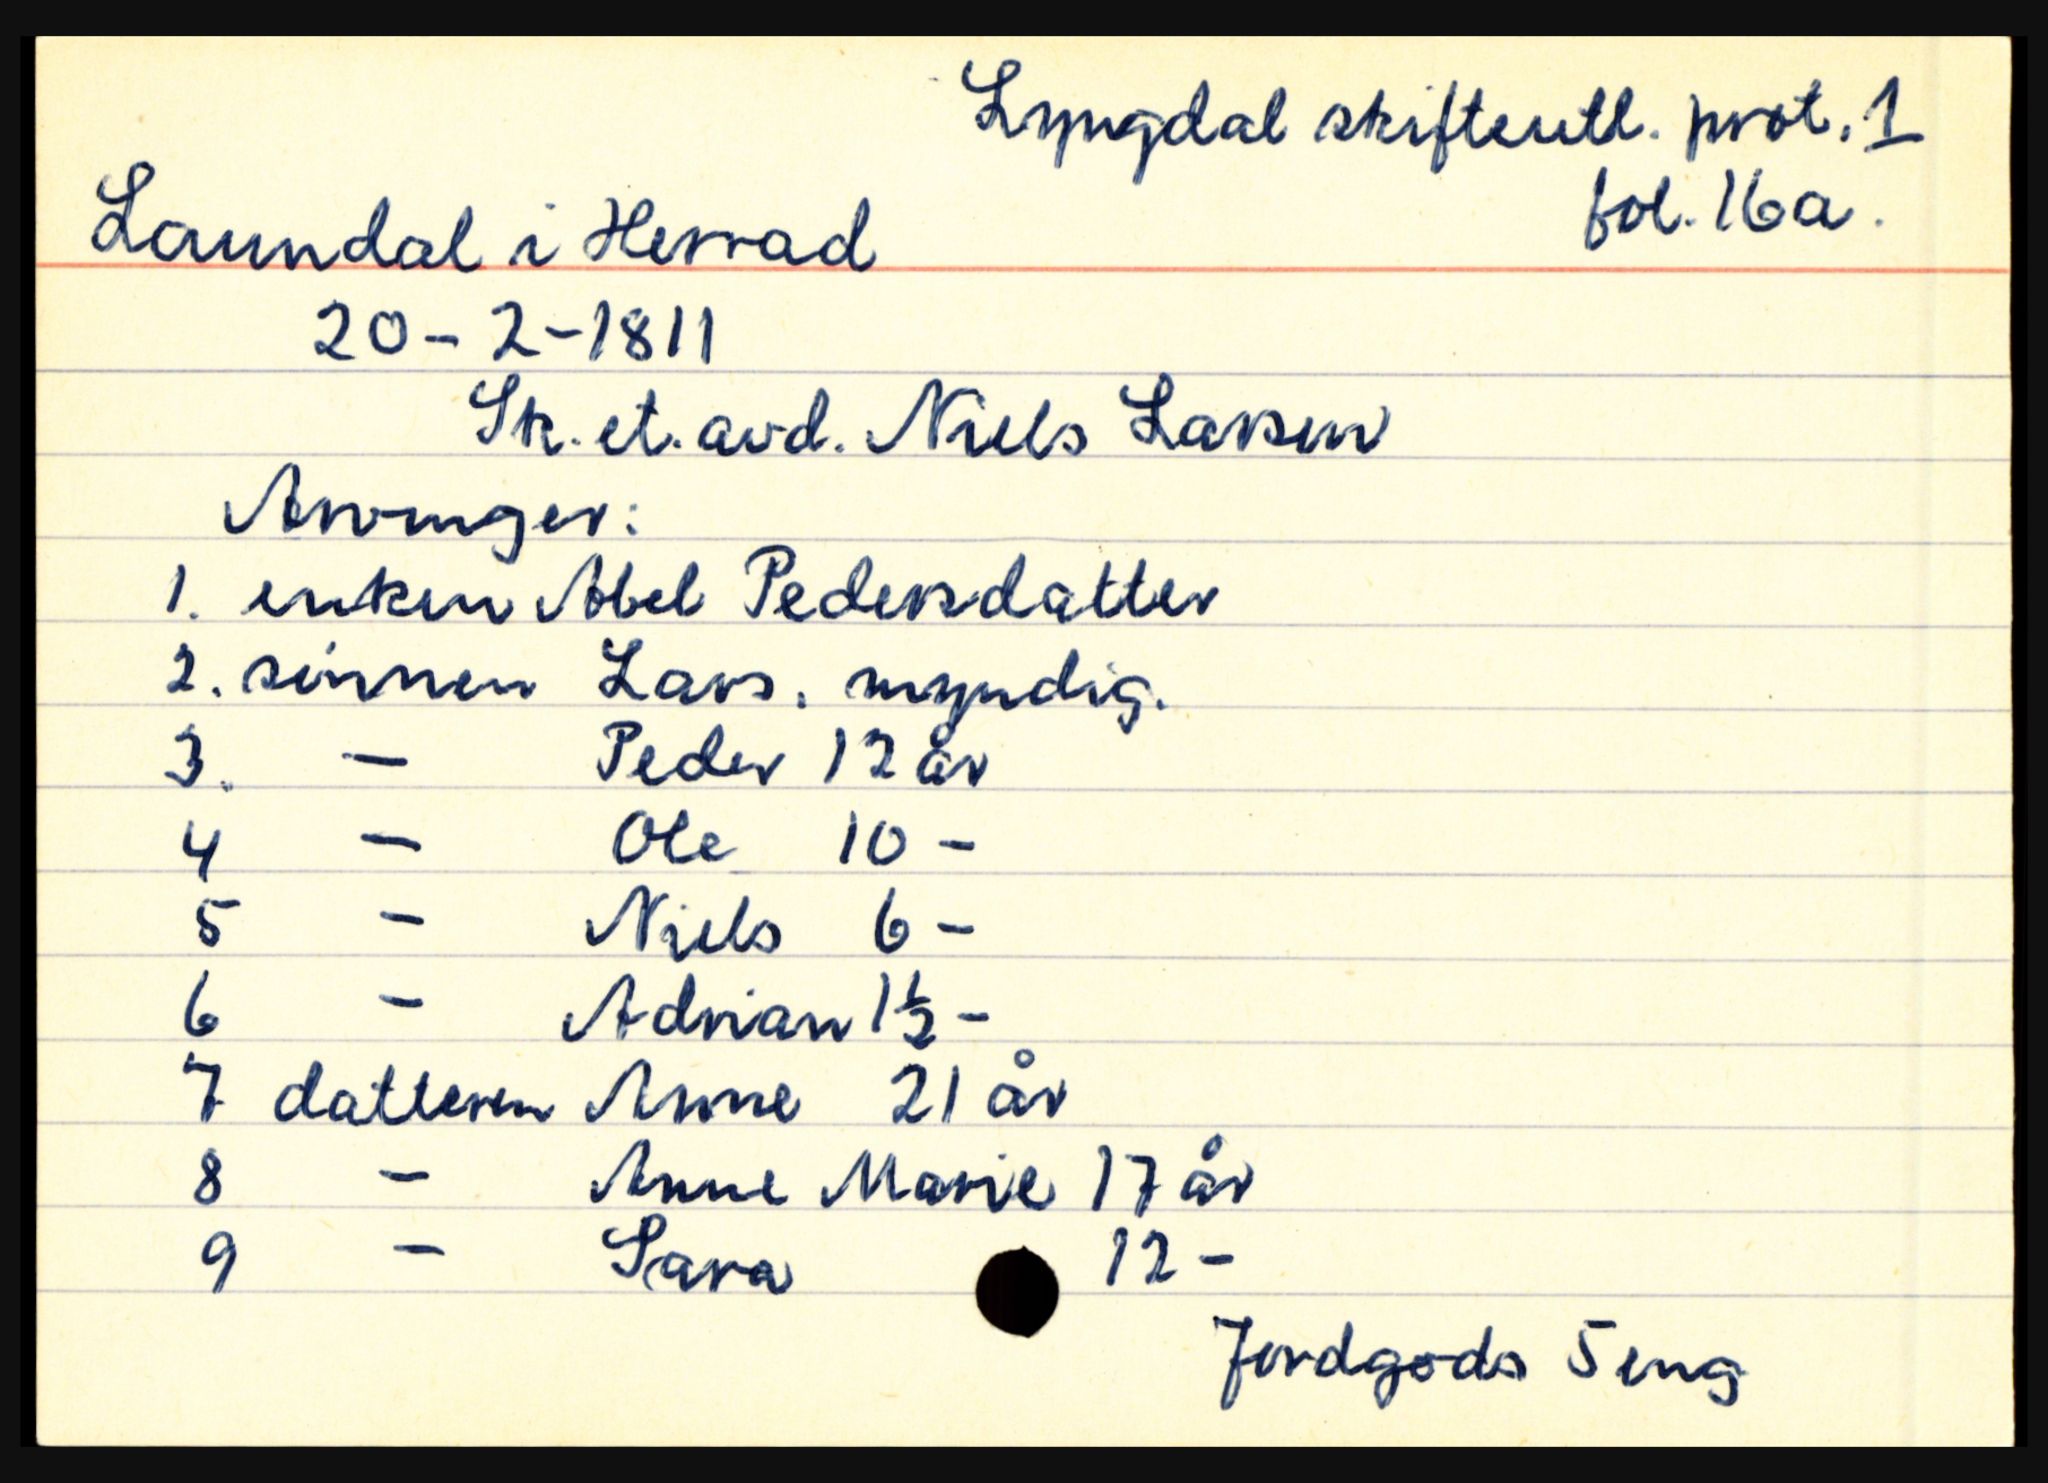 Lyngdal skifteutl. prot. 1
fol. 16a.
Laundal i Herrad
20-2-1811
Sk. et. avd. Niels Larsen
Arvinger:
1. enken Abel Pedersdatter
2. sønnen Lars. myndig.
3. - Peder 12 år
4 - Ole 10 -
5 - Niels 6 -
6 - Adrian 1½ -
7 datteren Anne 21 år
8 - Anne Marie 17 år
9 - Sara 12 -
Jordgods 5 eng